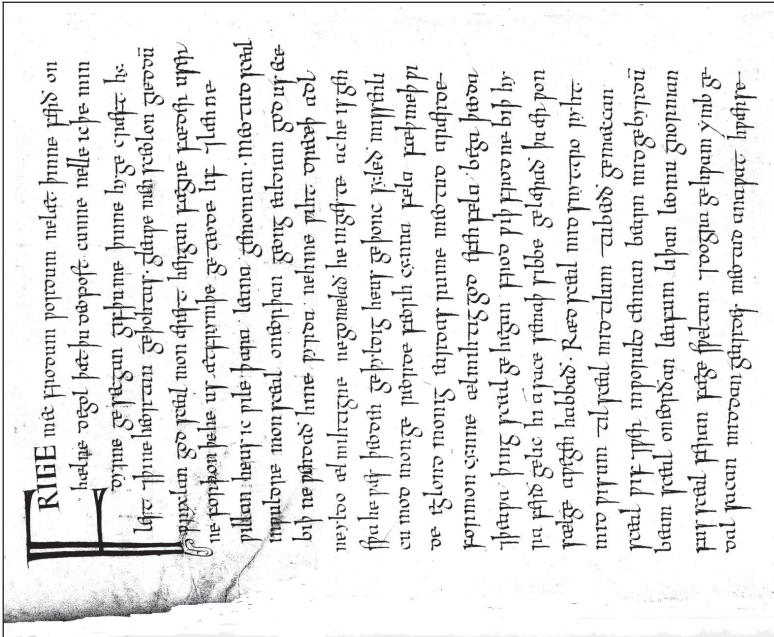 FRIGE mec frodum wordum ne læt þinne ferð on
hælne degol þæt þu deopost cunne nelle ic þe min
dyrne gesecgan gif þu me þinne hyge cræft hy
lest ⁊ þine heortan geþohtas gleawe men sceolon gieddū
wrixlan god sceal mon ærest hergan fægre fæder user
ne forþon þe he us æt frymþe geteode lif ⁊ lænne
willan he usic wile þara leana gemonian · meotud sceal
in wuldre mon sceal on eorþan geong ealdian god us ece
biþ ne wendað hine wyrda ne hine wiht dreceþ adl
ne yldo ælmihtigne ne gomelað he in gæste ac he is gen
swa he wæs þeoden geþyldig he us geþonc syleð missenli
cu mod monge reorde feorh cynna fela fæþmeþ wi
de eglond monig eardas rume meotud arærde
for moncynne ælmihtig god efen fela bega þeoda
⁊ þeawa þing sceal ge hegan frod wiþ frodne biþ hy
ra ferð gelic hi a sace semaþ sibbe gelærað þa ær won
sælge awegen habbað · Ræd sceal mid snyttro ryht
mid wisum til sceal mid tilum tu beoð gemæccan
sceal wif ⁊ wer in woruld bearn cennan mid gebyrdū
beam sceal on eorðan leafum liþan leomu gnornian
fus sceal feran fæge sweltan ⁊ dogra gehwam ymb ge
dal sacan middan geardes meotud ana wat hwær se